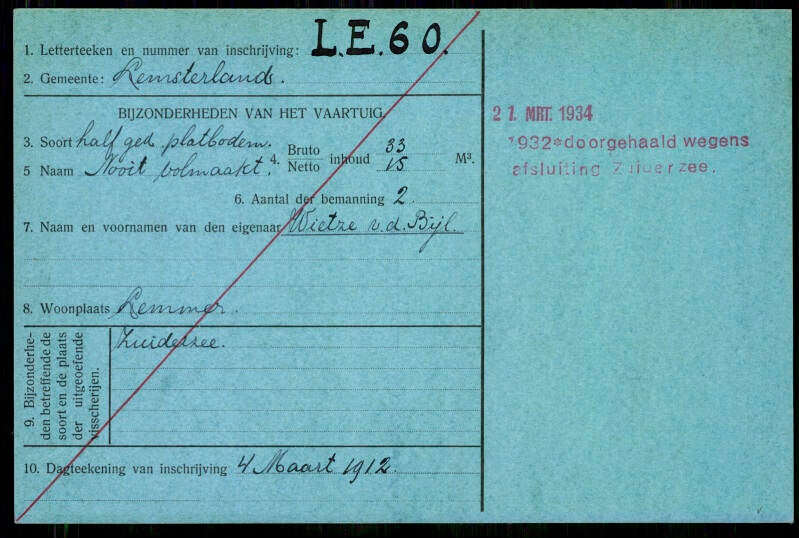 1. Letterteeken en nummer van inschrijving: L.E.60.
2. Gemeente: Lemsterland.
BIJZONDERHEDEN VAN HET VAARTUIG.
3. Soort half ged. platbodem.
4. Bruto inhoud 33 M³.
Netto 15
5 Naam Nooit volmaakt.
6. Aantal der bemanning 2.
7. Naam en voornamen van den eigenaar Wietze v.d. Bijl.
8. Woonplaats Lemmer.
9. Bijzonderhe-
den betreffende de
soort en de plaats
der uitgeoefende
visscherijen.
Zuiderzee.
10. Dagteekening van inschrijving 4 Maart 1912.
21. MRT. 1934
1932 doorgehaald wegens
afsluiting Zuiderzee.